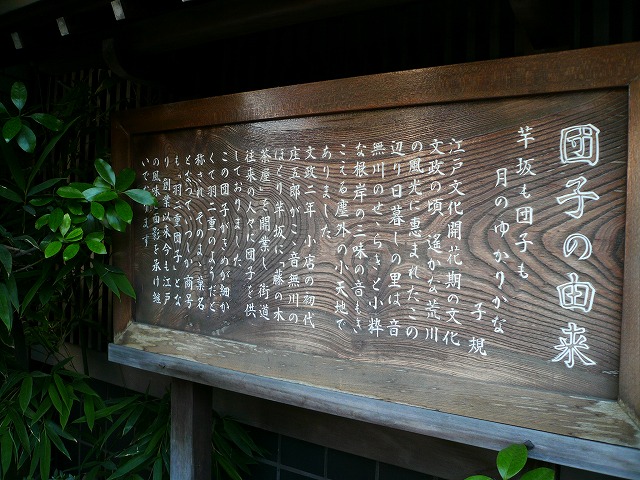 団子の由来
芋坂も団子も
月のゆかりかな
子規
江戸文化開花期の文化
文政の頃、遙かな荒川
の風光に恵まれたこの
辺り日暮しの里は、音
無川のせゝらぎと小粋
な根岸の三味の音もき
こえる塵外の小天地で
ありました
文政二年、小店の初代
庄五郎が、音無川の
ほとり芋坂に藤の木
茶屋を開業し、街道
往来の人々に団子を供
しておりました
この団子がきめが細か
くて羽二重のようだと
称され、そのまゝ菓名
となって、いつしか商号
も「羽二重団子」とな
り、創業以来今も江戸
の風味と面影を承け継
いでおります